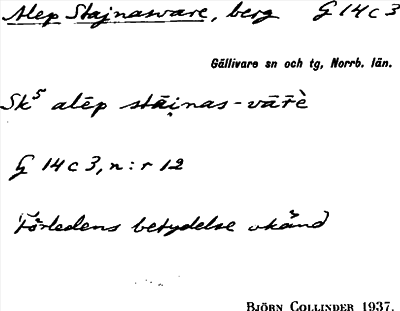 Alep Stajnasvare, berg G 14 c 3
Gällivare sn och tg, Norrb. län.
Sk⁵ alēp stāi̯nas-vārè
G 14 c 3, n:r 12
Förledens betydelse okänd
BJÖRN COLLINDER 1937.